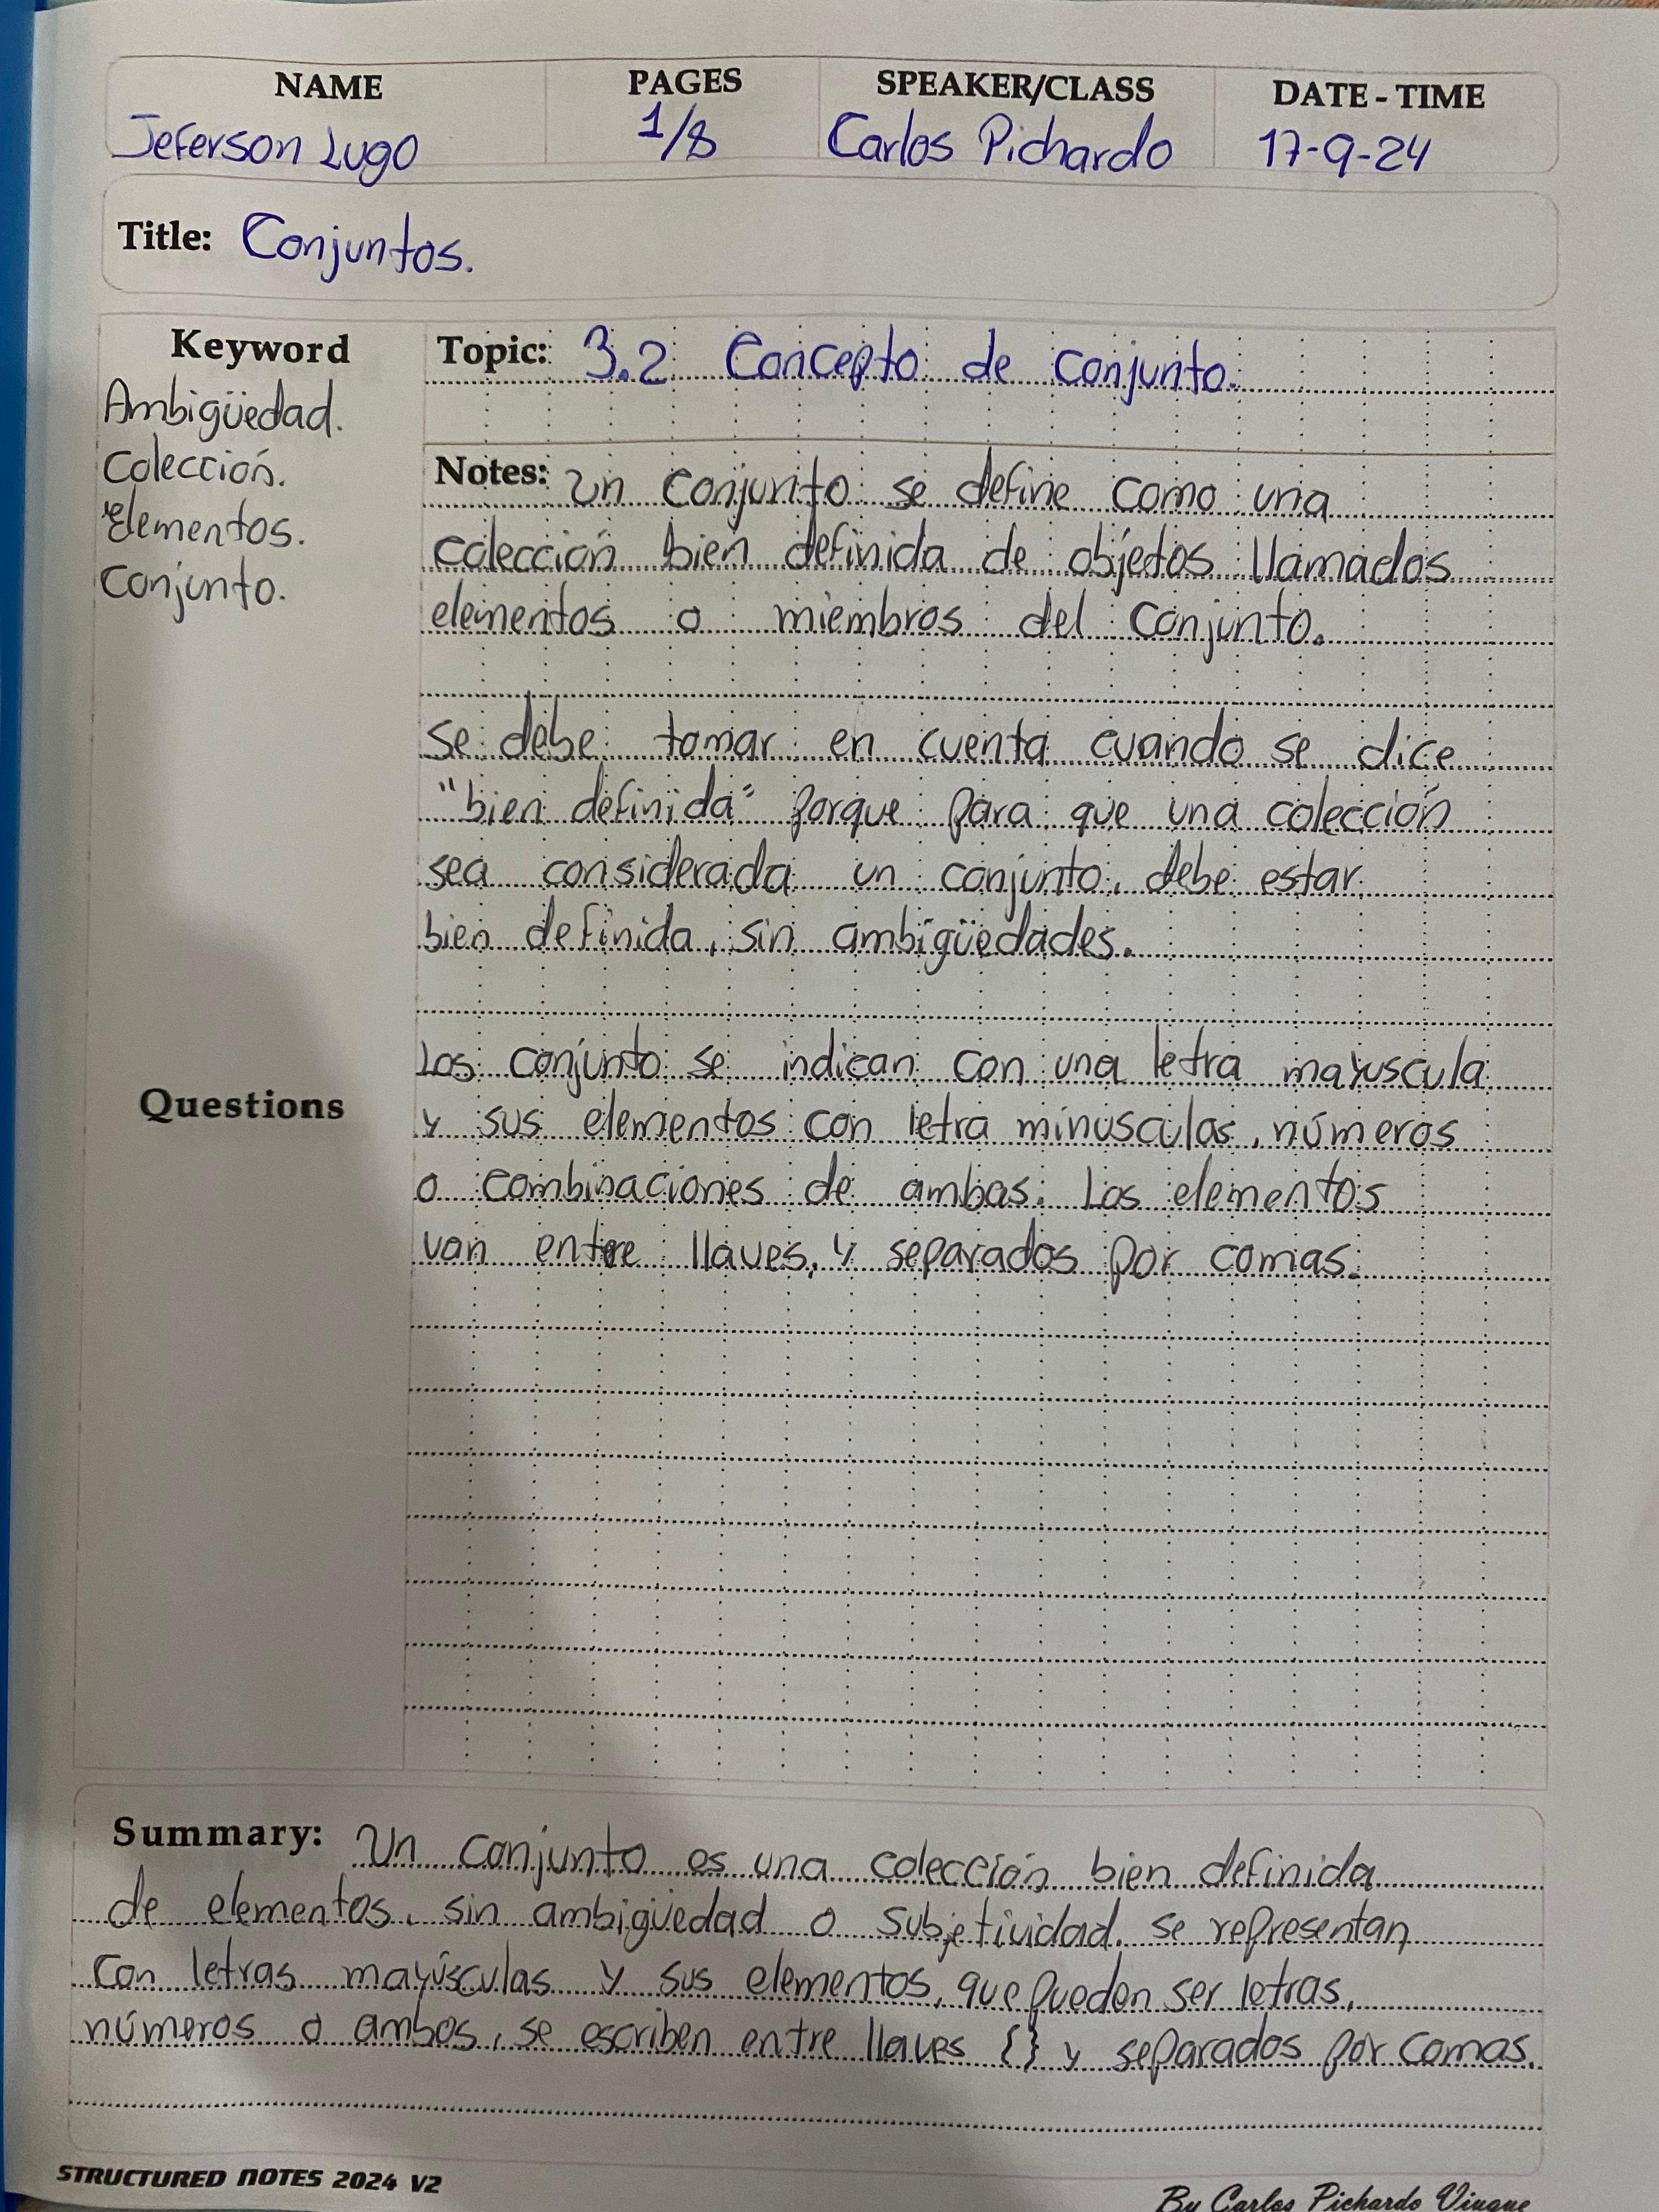 NAME PAGES SPEAKER/CLASS DATE - TIME
Jeferson Lugo 1/8 Carlos Pichardo 17-9-24
Title: Conjuntos.
Keyword
Ambigüedad.
Colección.
Elementos.
Conjunto.
Topic: 3.2 Concepto de conjunto.
Notes: Un conjunto se define como una
colección bien definida de objetos llamados
elementos o miembros del conjunto.
Se debe tomar en cuenta cuando se dice
"bien definida" porque para que una colección
sea considerada un conjunto, debe estar
bien definida, sin ambigüedades.
Los conjunto se indican con una letra mayuscula
y sus elementos con letra minusculas, números
o combinaciones de ambas. Los elementos
van entre llaves, y separados por comas.
Questions
Summary: Un conjunto es una colección bien definida
de elementos, sin ambigüedad o subjetividad. Se representan
con letras mayúsculas y sus elementos, que pueden ser letras,
números o ambos, se escriben entre llaves {} y separados por comas.
STRUCTURED NOTES 2024 V2
By Carlos Pichardo Viuque